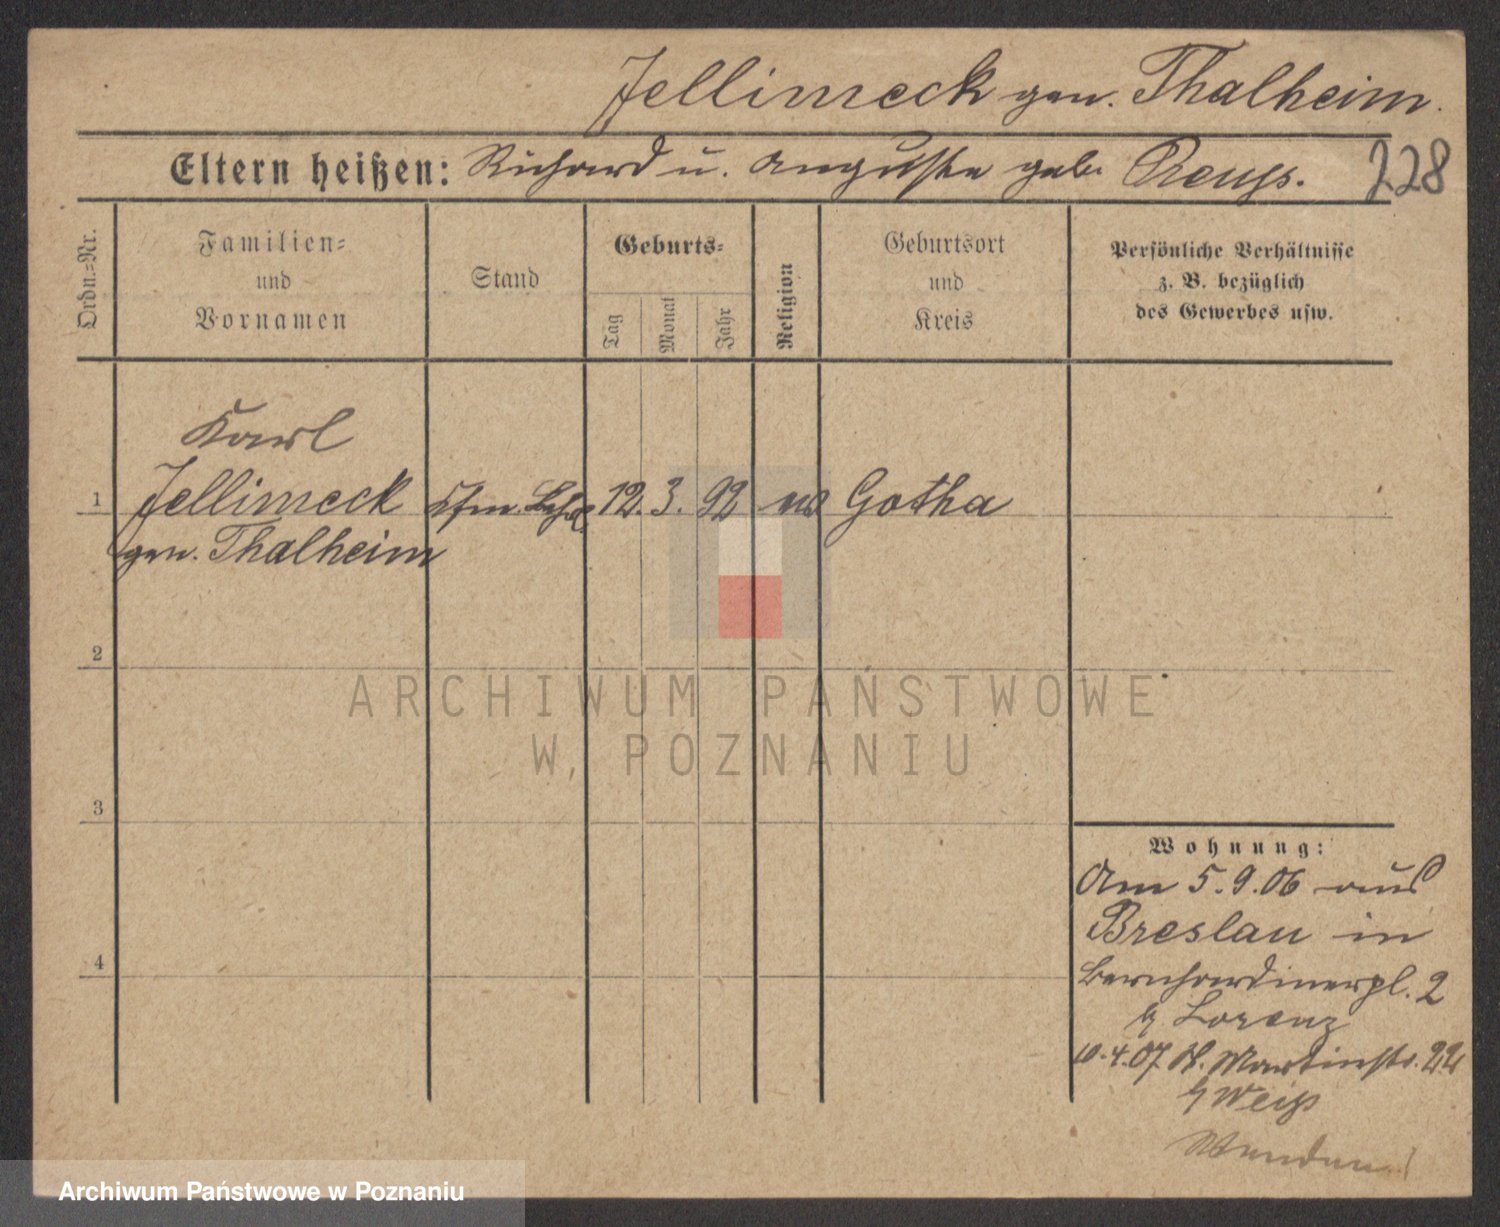 Jellimeck gen. Thalheim.
Eltern heißen: Richard u. Auguste geb. Preuss.
228
Ordn.-Nr.
Familien-
und
Vornamen
Stand
Geburts-
Tag
Monat
Jahr
Religion
Geburtsort
und
Kreis
Persönliche Verhältnisse
z. B. bezüglich
des Gewerbes usw.
Karl
1 Jellimeck Kfm. 12. 3. 92 Gotha
gen. Thalheim
2
3
4
ARCHIWUM PAŃSTWOWE
W POZNANIU
Wohnung:
Am 5.9.06 aus
Breslau in
Bernhardinerpl. 2
b/ Lorenz
10.4.07 St. Martinstr. 22
b/ Weiß
Wenden!
Archiwum Państwowe w Poznaniu